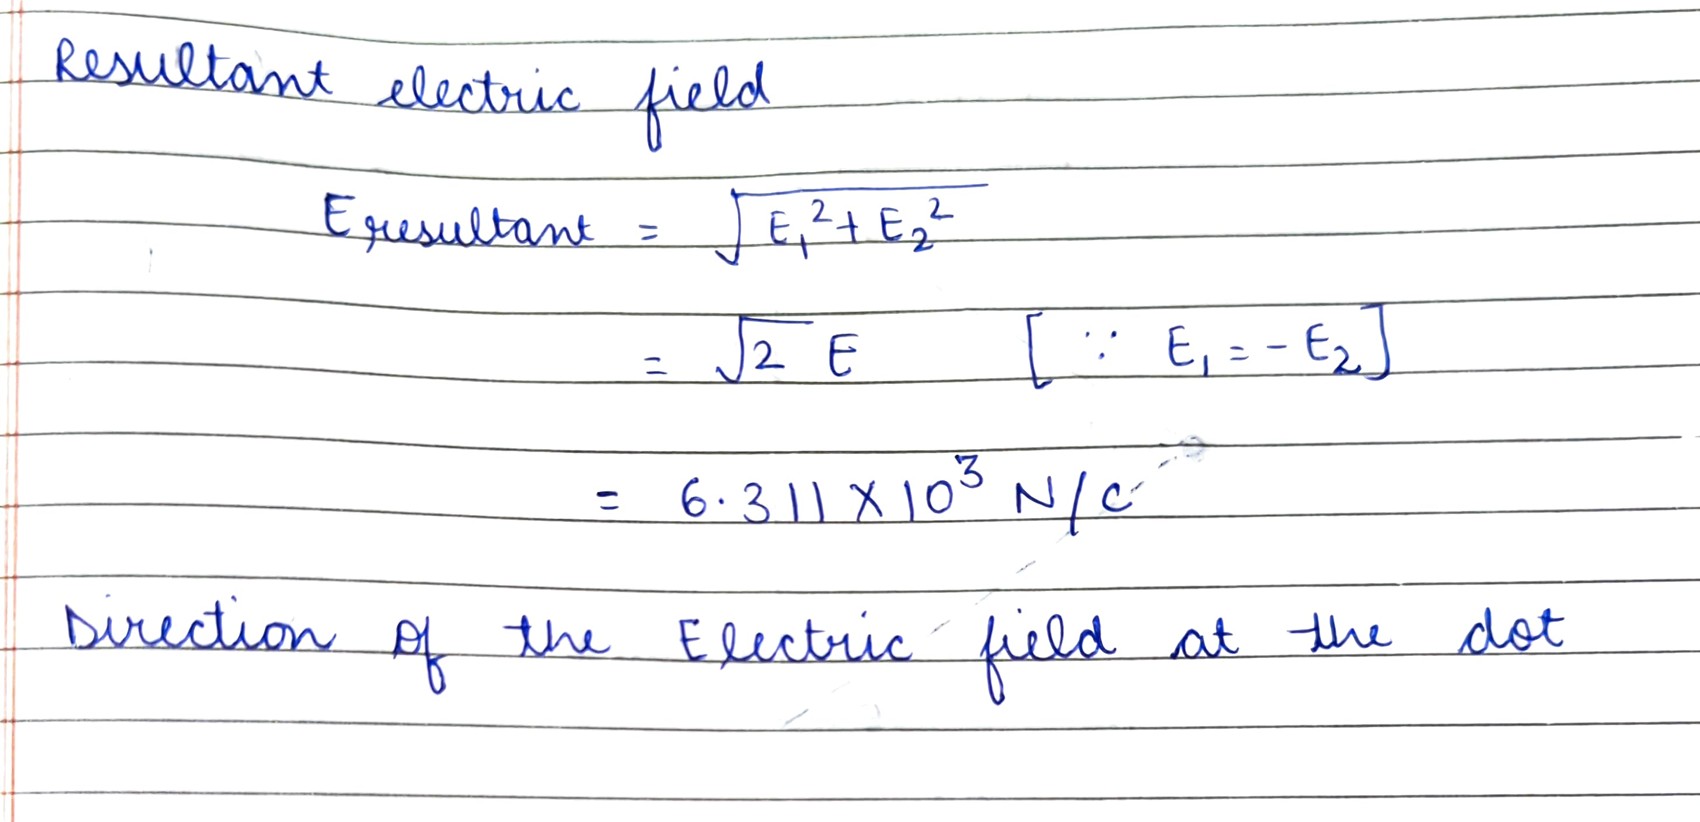 Resultant electric field
E resultant = √E₁² + E₂²
= √2 E [ ∵ E₁ = - E₂ ]
= 6.311 × 10³ N/C
Direction of the Electric field at the dot